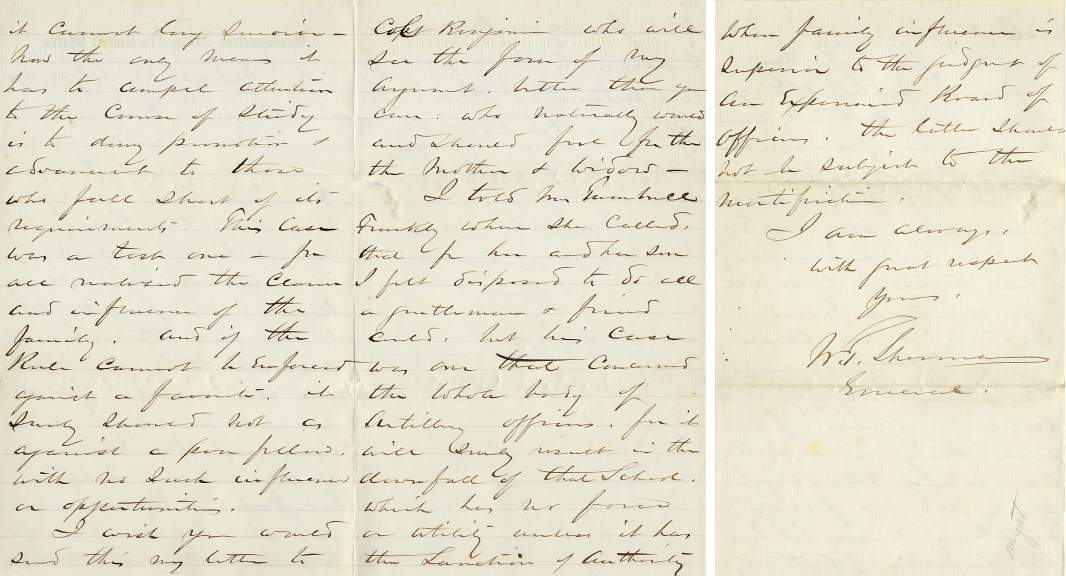 it cannot long survive –
Now the only means it
has to compel attention
to the Course of Study
is to deny promotion &
advancement to those
who fall short of its
requirements This Case
was a test one – for
all noticed the claim
and influence of the
family. and if the
Rule cannot be enforced
against a favorite. it
surely should not as
against a poor fellow.
with no such influence
or opportunities.
I wish you would
send this my letter to
Capt Benjamin who will
see the force of my
argument. better than you
can: who naturally would
and should feel for the
the Mother & Widow –
I told Mrs
Frankly when she called.
that for her and her son
I felt disposed to do all
a gentleman & friend
could. but his Case
was one that concerned
the whole body of
Artillery officers. for it
will surely result in the
downfall of that School.
which has no force
or utility unless it has
the Sanction of Authority
When family influence is
superior to the judgmt of
an Experienced Board of
officers. the latter should
not be subject to the
mortification.
I am always.
with great respect
Yours.
W. T. Sherman
General.